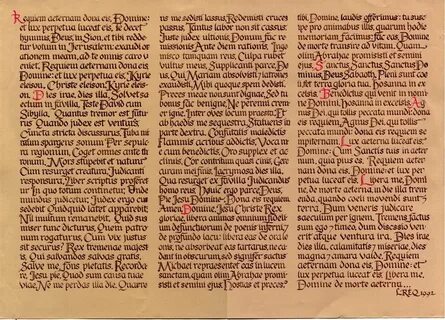 Requiem aeternam dona eis, Domine:
et lux perpetua luceat eis. Te decet
hymnus, Deus, in Sion, et tibi reddetur
votum in Jerusalem: exaudi orationem
meam, ad te omnis caro veniet.
Requiem aeternam dona eis,
Domine: et lux perpetua eis. Kyrie
eleison. Christe eleison. Kyrie eleison.
Dies irae, dies illa, Solvet saeclum
in favilla, Teste David cum
Sibylla. Quantus tremor est futurus
Quando judex est venturus
Cuncta stricte discussurus. Tuba mirum
spargens sonum Per sepulcra
regionum, Coget omnes ante thronum.
Mors stupebit et natura
Cum resurget creatura, Judicanti
responsura. Liber scriptus proferetur
In quo totum continetur, Unde
mundus judicetur. Judex ergo cum
sedebit Quidquid latet apparebit:
Nil inultum remanebit. Quid sum
miser tunc dicturus, Quem patronum
rogaturus, Cum vix justus
sit securus? Rex tremendae majestatis,
Qui salvandos salvas gratis,
Salve me, fons pietatis. Recordare
Jesu pie, Quod sum causa tuae
viae, Ne me perdas illa die. Quaerens
me sedisti lassus, Redemisti cruces
passus, Tantus labor non sit cassus.
Juste judex ultionis Donum fac remissionis
Ante diem rationis. Ingemisco
tamquam reus, Culpa rubet
vultus meus, Supplicanti parce, Deus,
Qui Mariam absolvisti, et latronem
exaudisti, Mihi quoque spem dedisti.
Preces meae non sunt dignae, Sed tu
bonus fac benigne, Ne perenni cremer
igne. Inter oves locum praesta Et
ab haedis me sequestra, Statuens in
parte dextra. Confutatis maledictis
Flammis acribus addictis, Voca me
cum benedictis. Oro supplex et acclinis,
Cor contritum quasi cinis, Gere
curam mei finis. Lacrymosa dies illa
Qua resurget ex favilla Judicandus
homo reus. Huic ergo parce Deus,
Pie Jesu Domine: Dona eis requiem
Amen. Domine, Jesu Christe Rex
gloriae, libera animas omnium fidelium
defunctorum de poenis inferni, et
de profundo lacu: libera eas de ore leonis,
ne absorbeat eas tartarus, ne cadant
in obscurum, sed signifer sanctus
Michael repraesentet eas in lucem
sanctam, quam olim Abrahae promisisti
et semini ejus. Hostias et preces
tibi, Domine, laudis offerimus: tu suscipe
pro animabus illis, quarum hodie
memoriam facimus: fac eas, Domine,
de morte transire ad vitam. Quam
olim Abrahae promisisti et semini
ejus. Sanctus, Sanctus, Sanctus Dominus
Deus Sabaoth. Pleni sunt coeli
et terra gloria tua. Hosanna in excelsis.
Benedictus, qui venit in nomine
Domini. Hosanna in excelsis. Agnus
Dei, qui tollis peccata mundi: dona
eis requiem. Agnus Dei, qui tollis peccata
mundi: dona eis requiem sempiternam.
Lux aeterna luceat eis,
Domine: Cum Sanctis tuis in aeternum,
quia pius es. Requiem aeternam
dona eis, Domine: et lux perpetua
luceat eis. Libera me, Domine,
de morte aeterna, in die illa tremenda,
quando coeli movendi sunt et
terra, Dum veneris judicare
saeculum per ignem. Tremens factus
sum ego et timeo, dum discussio venerit
atque ventura ira. Dies irae
dies illa, calamitatis et miseriae, dies
magna et amara valde. Requiem aeternam
dona eis, Domine: et
lux perpetua luceat eis. Libera me,
Domine de morte aeterna...
CREQ 1992